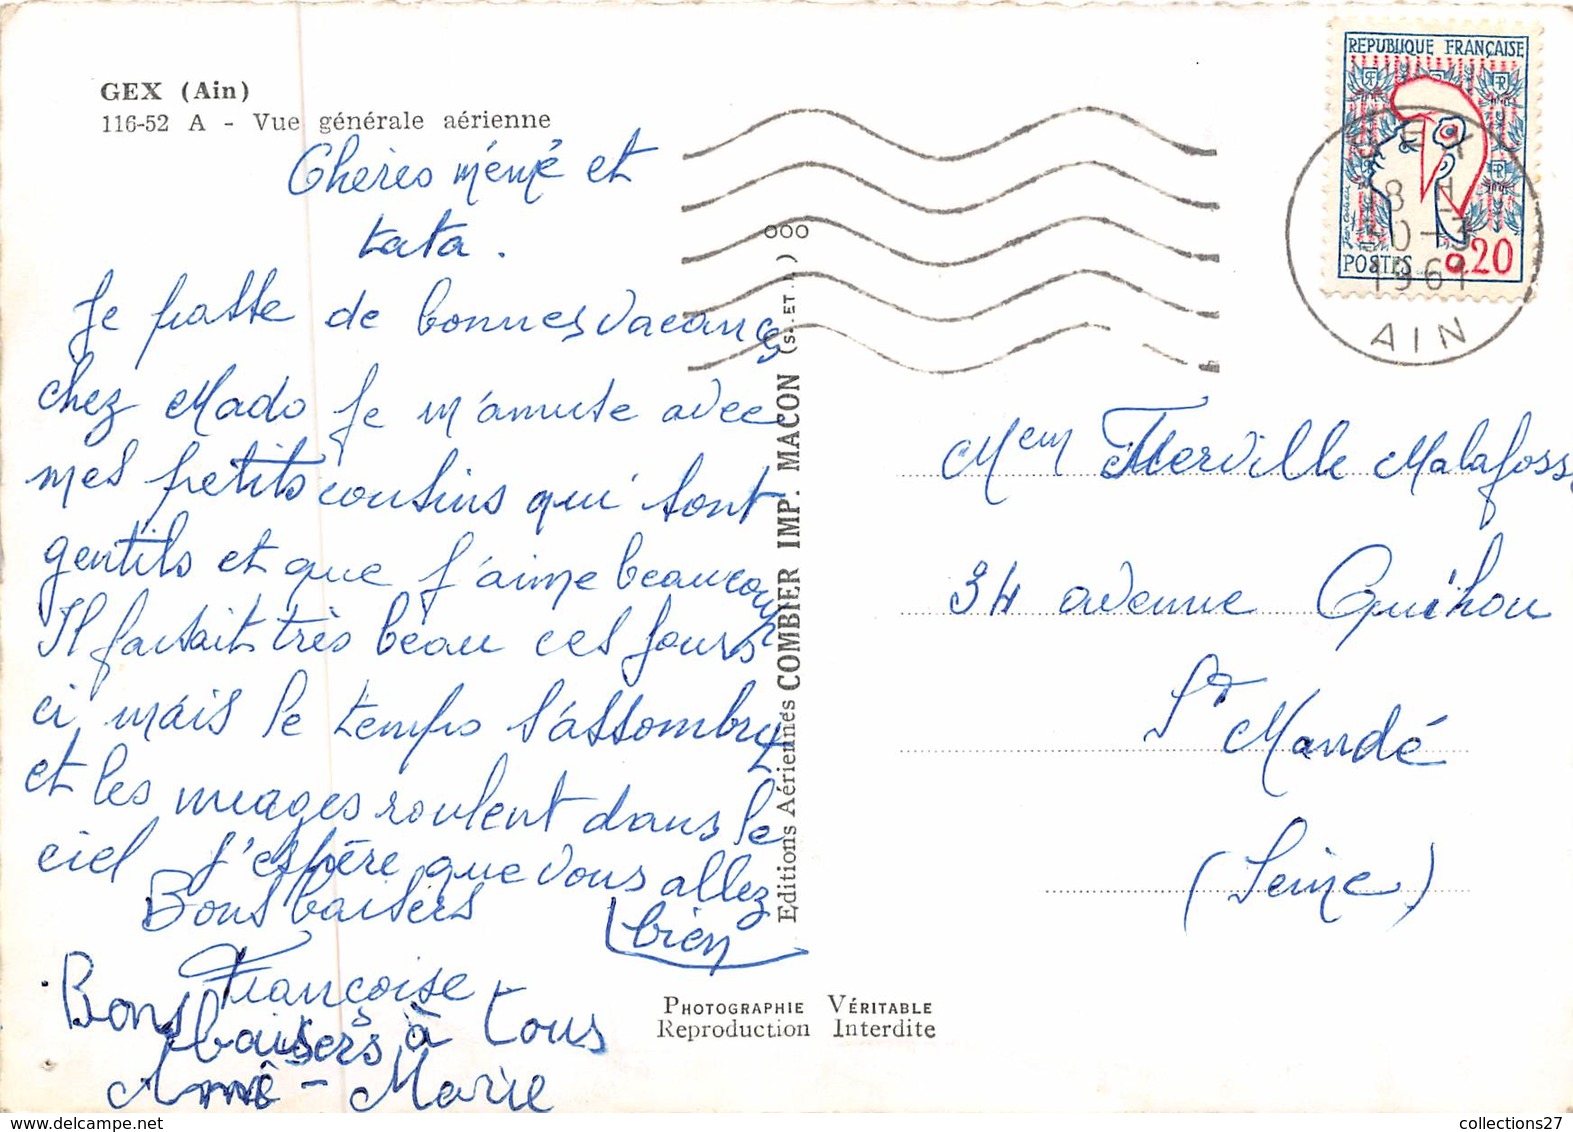 GEX (Ain)
116-52 A - Vue générale aérienne
Chères mémé et
tata.
Je passe de bonnes vacances
chez Mado Je m'amuse avec
mes petits cousins qui sont
gentils et que j'aime beaucoup
Il faisait très beau ces jours
ci mais le temps s'assombrit
et les nuages roulent dans le
ciel J'espère que vous allez
bien
Bons baisers
Françoise
Bons baisers à tous
Anne-Marie
Editions Aériennes COMBIER IMP. MACON (S.-ET-L.)
PHOTOGRAPHIE VÉRITABLE
Reproduction Interdite
REPUBLIQUE FRANÇAISE
POSTES 0,20
GEX
18 H
10-3
1961
AIN
Merville Malafosse
34 avenue Quihou
St Mandé
(Seine)
collections27